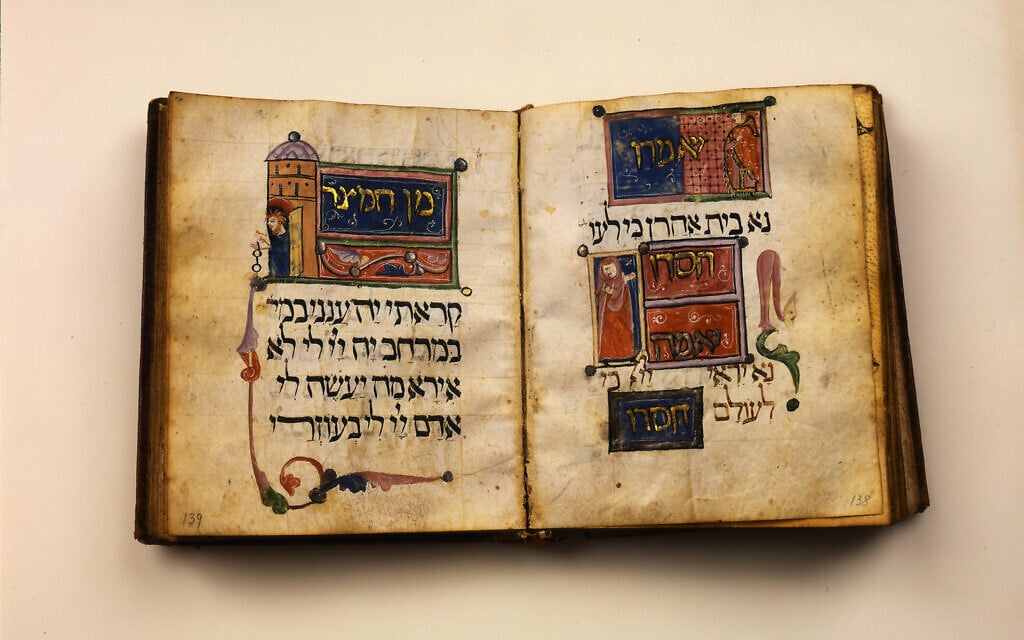 יאמרו
נא בית אהרן כי לעו
חסדו
יאמרו
נא יראי יי כי
לעולם
חסדו
138
מן המיצר
קראתי יה ענני במר
במרחב יה יי לי לא
אירא מה יעשה לי
אדם יי לי בעוזרי
139